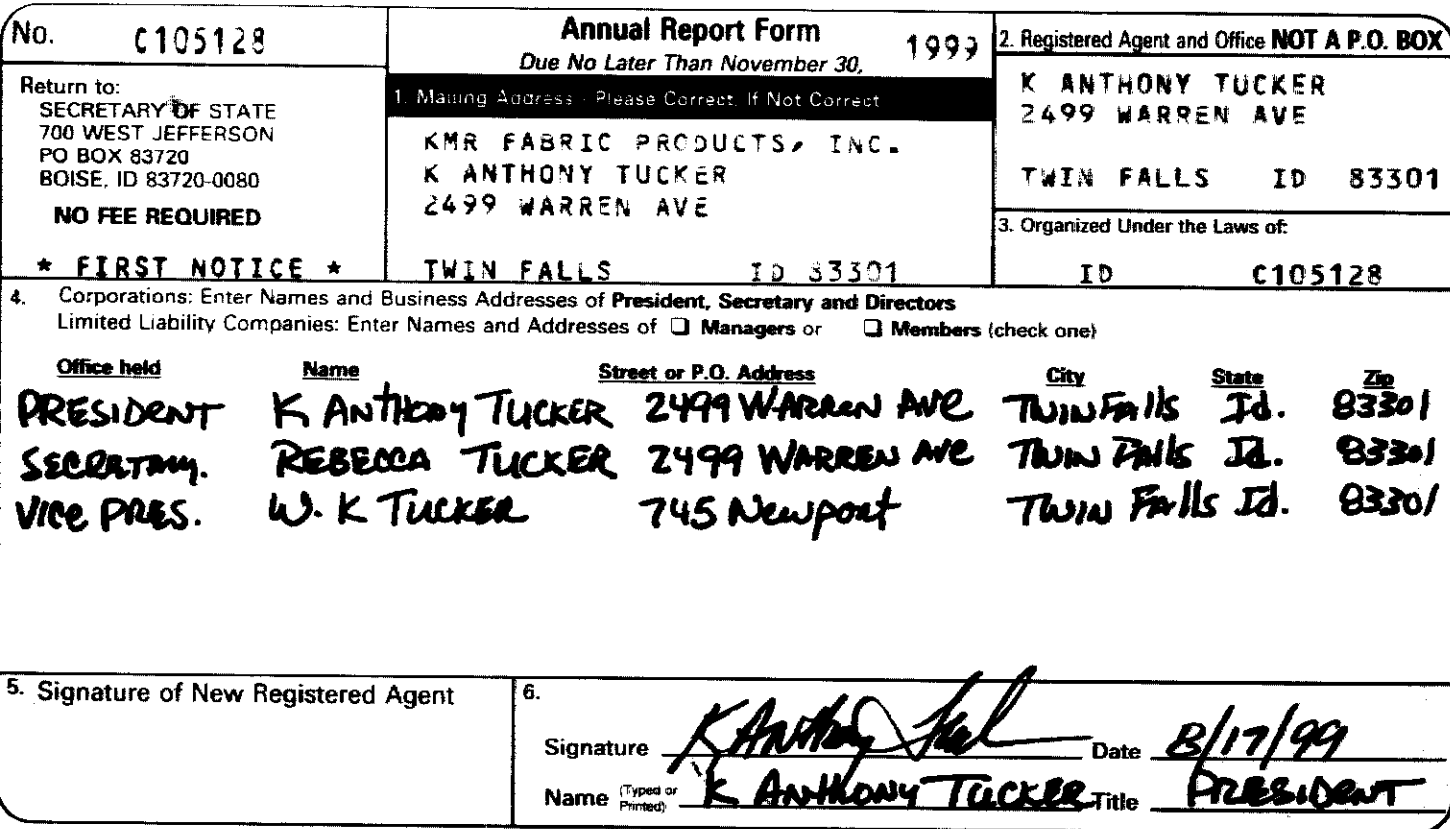 No. C105128
Return to:
SECRETARY OF STATE
700 WEST JEFFERSON
PO BOX 83720
BOISE, ID 83720-0080
NO FEE REQUIRED
* FIRST NOTICE *
Annual Report Form 1999
Due No Later Than November 30,
1. Mailing Address - Please Correct, If Not Correct
KMR FABRIC PRODUCTS, INC.
K ANTHONY TUCKER
2499 WARREN AVE
TWIN FALLS ID 83301
2. Registered Agent and Office NOT A P.O. BOX
K ANTHONY TUCKER
2499 WARREN AVE
TWIN FALLS ID 83301
3. Organized Under the Laws of:
ID C105128
4. Corporations: Enter Names and Business Addresses of President, Secretary and Directors
Limited Liability Companies: Enter Names and Addresses of ❏ Managers or ❏ Members (check one)
Office held Name Street or P.O. Address City State Zip
PRESIDENT K ANTHONY TUCKER 2499 WARREN AVE TWIN Falls Id. 83301
SECRETARY. REBECCA TUCKER 2499 WARREN AVE TWIN Falls Id. 83301
VICE PRES. W. K TUCKER 745 Newport TWIN Falls Id. 83301
5. Signature of New Registered Agent
6.
Signature K Anthony Tucker Date 8/17/99
Name (Typed or Printed) K ANTHONY TUCKER Title PRESIDENT